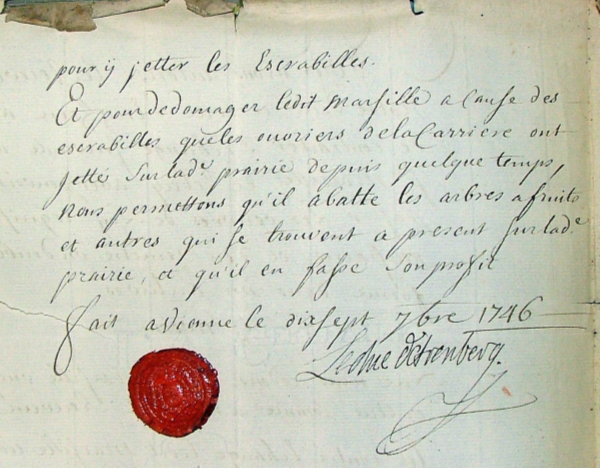 pour ÿ jetter les Escrabilles.
Et pour dedomager ledit Marsille a cause des
escrabilles queles ouvriers dela Carriere ont
Jetté Surlad.e prairie depuis quelque temps,
Nous permettons qu'il abatte les arbres a fruits
et autres qui se trouvent a present Surlad.e
prairie, et qu'il en fasse Sonprofit
fait a Vienne le dixsept 7bre 1746
Leduc d'Arenberg